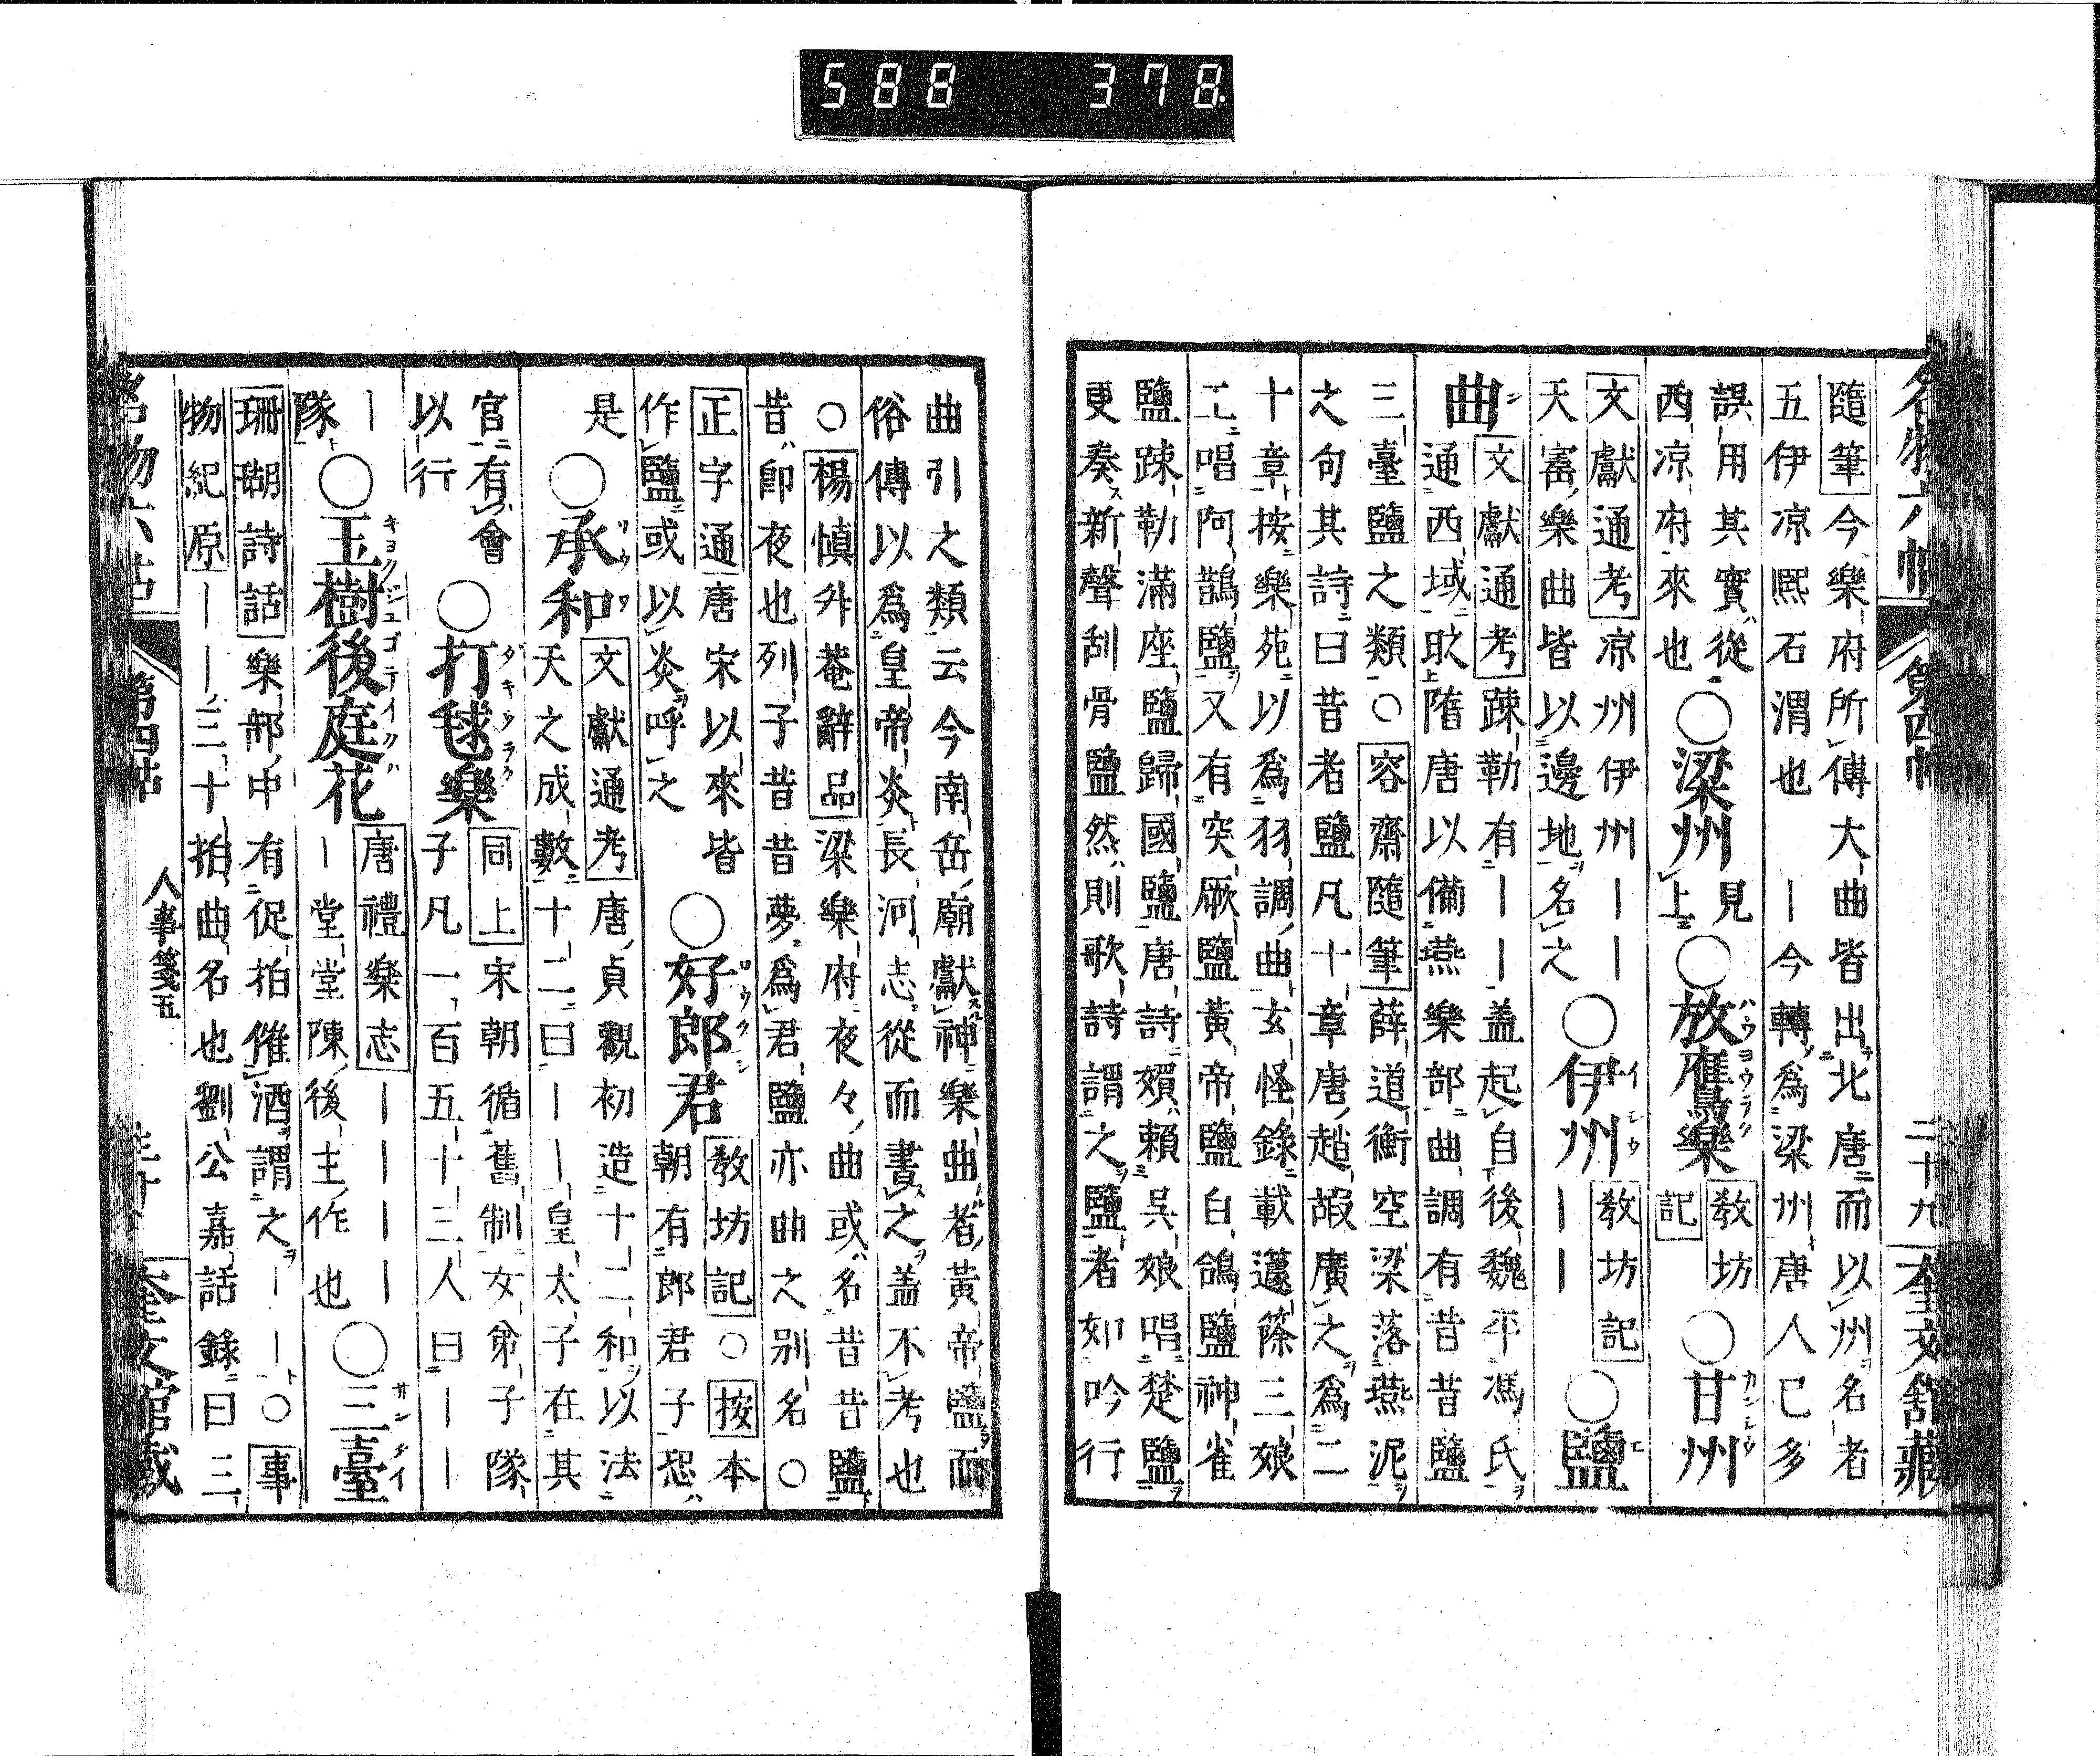 名物六帖 第四帖 二十九 奎文館藏
隨筆今樂府所傳大曲皆出北唐而以州名者
五伊凉熙石渭也 ｜今轉爲梁州唐人已多
誤用其實從
西凉府來也
○梁州 見上 ○放鷹樂 教坊記 ○甘州
ハウヨウラク カンシウ
文獻通考凉州伊州｜｜
天寶樂曲皆以邊地名之
○伊州 教坊記｜｜ ○鹽
イシウ エ
曲 ン
文獻通考踈勒有｜｜盖起自後魏平馮氏
通西域 隋唐以備燕樂部曲調有昔昔鹽
三臺鹽之類○容齋隨筆薛道衡空梁落燕泥
之句其詩曰昔者鹽凡十章唐趙嘏廣之爲二
十章按樂苑以爲羽調曲玄怪錄載籧篨三娘
工唱阿鵲鹽又有突厥鹽黃帝鹽白鴿鹽神雀
鹽踈勒滿座鹽歸國鹽唐詩 賴吳娘唱楚鹽
更奏新聲刮骨鹽然則歌詩謂之鹽者如吟行
曲引之類云今南岳廟獻神樂曲者黃帝鹽而
俗傳以爲皇帝炎長河志從而書之盖不考也
○楊愼升菴辭品梁樂府夜々曲或名昔昔鹽
昔即夜也列子昔昔夢爲君鹽亦曲之別名○
正字通唐宋以來皆
作鹽或以炎呼之
○好郎君 教坊記○按本
ロウクン
朝有郎君子恐
是
○承和 文獻通考唐貞觀初造十二和以法
リウワ
天之成數十二曰｜｜皇太子在其
官有會
以行
○打毬樂 同上宋朝循舊制女弟子隊
ダキウラク
子凡一百五十三人曰｜｜
｜
隊
○玉樹後庭花 唐禮樂志｜｜｜｜
キヨクジユゴテイクハ
｜堂堂陳後主作也
○三臺
サンタイ
珊瑚詩話樂部中有促拍催酒謂之｜｜○事
物紀原｜｜三十拍曲名也劉公嘉話錄曰三
名物六帖 第四帖 人事箋五 奎文館藏
588 378